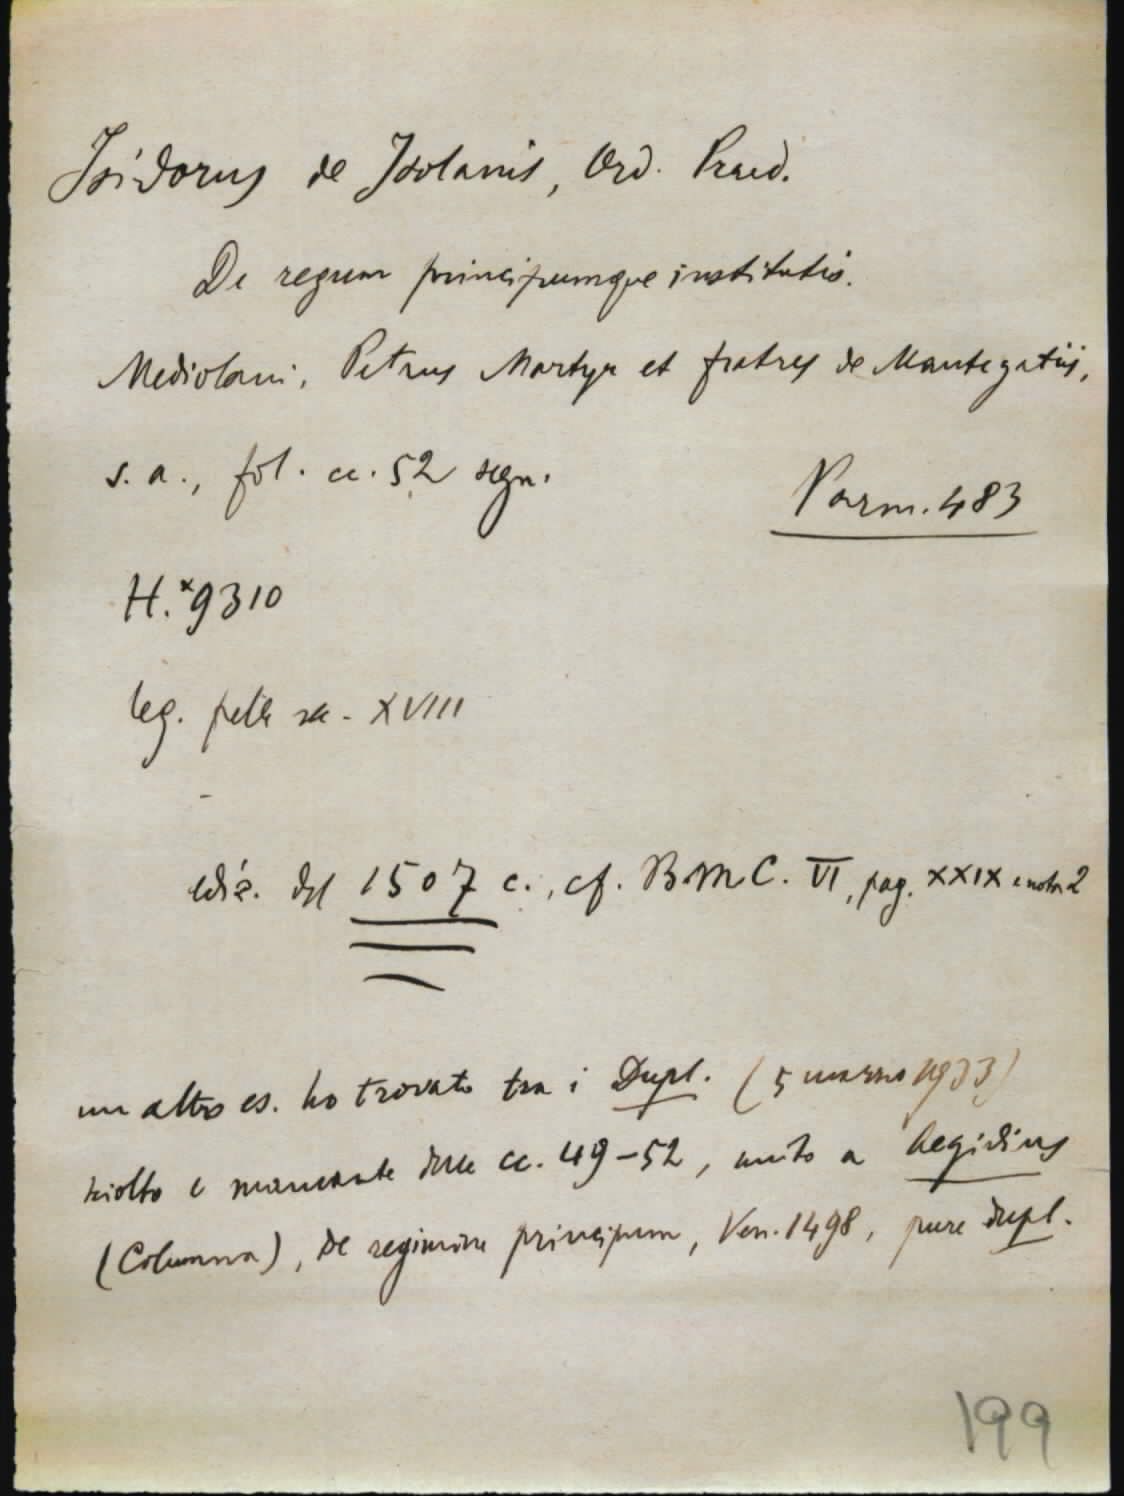 Isidorus de Isolanis, Ord. Praed.
De regum principumque institutis.
Mediolani, Petrus Martyr et fratres de Mantegatiis,
s. a., fol. cc. 52 segn.
Parm. 483
H.*9310
leg. pelle sec. XVIII
ediz. del 1507 c., cf. BMC. VI, pag. XXIX e nota 2
un altro es. ho trovato tra i Dupl. (5 marzo 1933)
sciolto e mancante delle cc. 49-52, unito a Aegidius
(Columna), De regimine principum, Ven. 1498, pure dupl.
199